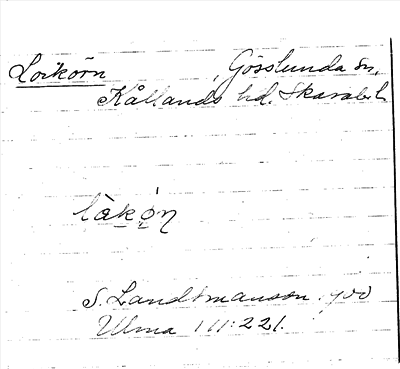 Lorkörn , Gösslunda sn,
Kållands hd. Skarab.l.
låkǫ̈n
S. Landtmanson. 900
Ulma 111:221.